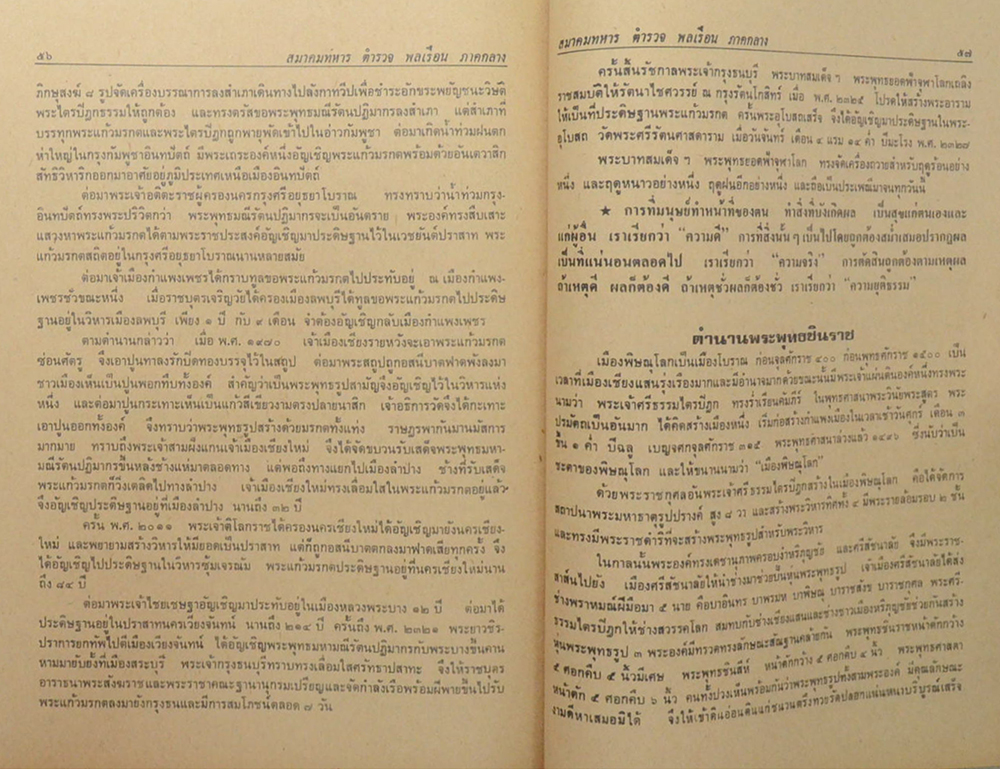 ๕๖
สมาคมทหาร ตำรวจ พลเรือน ภาคกลาง
ภิกษุสงฆ์ ๘ รูปจัดเครื่องบรรณาการลงสำเภาเดินทางไปลังกาทวีปเพื่อชำระอักขระพยัญชนะวิบัติ
พระไตรปิฎกธรรมให้ถูกต้อง และทรงตรัสขอพระพุทธมณีรัตนปฏิมากรลงสำเภา แต่สำเภาที่
บรรทุกพระแก้วมรกตและพระไตรปิฎกถูกพายุพัดเข้าไปในอ่าวกัมพูชา ต่อมาเกิดน้ำท่วมฝนตก
ห่าใหญ่ในกรุงกัมพูชาอินทปัตถ์ มีพระเถระองค์หนึ่งอัญเชิญพระแก้วมรกตพร้อมด้วยอันเตวาสิก
สัทธิวิหาริกออกมาอาศัยอยู่ภูมิประเทศเหนือเมืองอินทปัตถ์
ต่อมาพระเจ้าอติตะราชผู้ครองนครกรุงศรีอยุธยาโบราณ ทรงทราบว่าน้ำท่วมกรุง-
อินทปัตถ์ทรงพระปริวิตกว่า พระพุทธมณีรัตนปฏิมากรจะเป็นอันตราย พระองค์ทรงสืบเสาะ
แสวงหาพระแก้วมรกตได้ตามพระราชประสงค์อัญเชิญมาประดิษฐานไว้ในเวชยันต์ปราสาท พระ
แก้วมรกตสถิตอยู่ในกรุงศรีอยุธยาโบราณนานหลายสมัย
ต่อมาเจ้าเมืองกำแพงเพชรได้กราบทูลขอพระแก้วมรกตไปประทับอยู่ ณ เมืองกำแพง-
เพชรชั่วขณะหนึ่ง เมื่อราชบุตรเจริญวัยได้ครองเมืองลพบุรีได้ทูลขอพระแก้วมรกตไปประดิษ
ฐานอยู่ในวิหารเมืองลพบุรี เพียง ๑ ปี กับ ๙ เดือน จำต้องอัญเชิญกลับเมืองกำแพงเพชร
ตามตำนานกล่าวว่า เมื่อ พ.ศ. ๑๙๗๐ เจ้าเมืองเชียงรายหวังจะเอาพระแก้วมรกต
ซ่อนศัตรู จึงเอาปูนทาลงรักปิดทองบรรจุไว้ในสถูป ต่อมาพระสถูปถูกอสนีบาตฟาดพังลงมา
ชาวเมืองเห็นเป็นปูนพอกทึบทั้งองค์ สำคัญว่าเป็นพระพุทธรูปสามัญจึงอัญเชิญไว้ในวิหารแห่ง
หนึ่ง และต่อมาปูนกระเทาะเห็นเป็นแก้วสีเขียวงามตรงปลายนาสิก เจ้าอธิการวัดจึงได้กะเทาะ
เอาปูนออกทั้งองค์ จึงทราบว่าพระพุทธรูปสร้างด้วยมรกตทั้งแท่ง ราษฎรพากันมานมัสการ
มากมาย ทราบถึงพระเจ้าสามฝั่งแกนเจ้าเมืองเชียงใหม่ จึงได้จัดขบวนรับเสด็จพระพุทธมหา-
มณีรัตนปฏิมากรขึ้นหลังช้างแห่มาตลอดทาง แต่พอถึงทางแยกไปเมืองลำปาง ช้างที่รับเสด็จ
พระแก้วมรกตก็วิ่งเตลิดไปทางลำปาง เจ้าเมืองเชียงใหม่ทรงเลื่อมใสในพระแก้วมรกตอยู่แล้ว
จึงอัญเชิญประดิษฐานอยู่ที่เมืองลำปาง นานถึง ๓๒ ปี
ครั้น พ.ศ. ๒๐๑๑ พระเจ้าติโลกราชได้ครองนครเชียงใหม่ได้อัญเชิญมายังนครเชียง-
ใหม่ และพยายามสร้างวิหารให้มียอดเป็นปราสาท แต่ก็ถูกอสนีบาตตกลงมาฟาดเสียทุกครั้ง จึง
ได้อัญเชิญไปประดิษฐานในวิหารซุ้มเจรณัม พระแก้วมรกตประดิษฐานอยู่ที่นครเชียงใหม่นาน
ถึง ๘๔ ปี
ต่อมาพระเจ้าไชยเชษฐาอัญเชิญมาประทับอยู่ในเมืองหลวงพระบาง ๑๒ ปี ต่อมาได้
ประดิษฐานอยู่ในปราสาทนครเวียงจันทน์ นานถึง ๒๑๔ ปี ครั้นถึง พ.ศ. ๒๓๒๑ พระยาวชิร-
ปราการยกทัพไปตีเมืองเวียงจันทน์ ได้อัญเชิญพระพุทธมหามณีรัตนปฏิมากรกับพระบางขึ้นคาน
หามมายับยั้งที่เมืองสระบุรี พระเจ้ากรุงธนบุรีทราบทรงเลื่อมใสศรัทธาปสาทะ จึงให้ราชบุตร
อาราธนาพระสังฆราชและพระราชาคณะฐานานุกรมเปรียญและจัดกำลังเรือพร้อมผีพายขึ้นไปรับ
พระแก้วมรกตลงมายังกรุงธนและมีการสมโภชน์ตลอด ๗ วัน
สมาคมทหาร ตำรวจ พลเรือน ภาคกลาง
๕๗
ครั้นสิ้นรัชกาลพระเจ้ากรุงธนบุรี พระบาทสมเด็จฯ พระพุทธยอดฟ้าจุฬาโลกเถลิง
ราชสมบัติให้รัตนาไชศวรรย์ ณ กรุงรัตนโกสินทร์ เมื่อ พ.ศ. ๒๓๒๕ โปรดให้สร้างพระอาราม
ให้เป็นที่ประดิษฐานพระแก้วมรกต ครั้นพระอุโบสถเสร็จ จึงได้อัญเชิญมาประดิษฐานในพระ-
อุโบสถ วัดพระศรีรัตนศาสดาราม เมื่อวันจันทร์ เดือน ๔ แรม ๑๔ ค่ำ ปีมะโรง พ.ศ. ๒๓๒๗
พระบาทสมเด็จฯ พระพุทธยอดฟ้าจุฬาโลก ทรงจัดเครื่องถวายสำหรับฤดูร้อนอย่าง
หนึ่ง และฤดูหนาวอย่างหนึ่ง ฤดูฝนอีกอย่างหนึ่ง และถือเป็นประเพณีมาจนทุกวันนี้
★ การที่มนุษย์ทำหน้าที่ของตน ทำสิ่งที่บังเกิดผล เป็นสุขแก่ตนเองและ
แก่ผู้อื่น เราเรียกว่า "ความดี" การที่สิ่งนั้นๆ เป็นไปโดยถูกต้องสม่ำเสมอปรากฏผล
เป็นที่แน่นอนตลอดไป เราเรียกว่า "ความจริง" การตัดสินถูกต้องตามเหตุผล
ถ้าเหตุดี ผลก็ต้องดี ถ้าเหตุชั่วผลก็ต้องชั่ว เราเรียกว่า "ความยุติธรรม"
ตำนานพระพุทธชินราช
เมืองพิษณุโลกเป็นเมืองโบราณ ก่อนจุลศักราช ๔๐๐ ก่อนพุทธศักราช ๑๕๐๐ เป็น
เวลาที่เมืองเชียงแสนรุ่งเรืองมากและมีอำนาจมากด้วยขณะนั้นมีพระเจ้าแผ่นดินองค์หนึ่งทรงพระ
นามว่า พระเจ้าศรีธรรมไตรปิฎก ทรงร่ำเรียนคัมภีร์ ในพุทธศาสนาพระวินัยพระสูตร พระ
ปรมัตถ์เป็นอันมาก ได้คิดสร้างเมืองหนึ่ง เริ่มก่อสร้างกำแพงเมืองในเวลาเช้าวันศุกร์ เดือน ๓
ขึ้น ๑ ค่ำ ปีฉลู เบญจศกจุลศักราช ๓๑๕ พระพุทธศาสนาล่วงแล้ว ๑๔๙๖ ซึ่งนับว่าเป็น
ระตาของพิษณุโลก และให้ขนานนามว่า "เมืองพิษณุโลก"
ด้วยพระราชกุศลอันพระเจ้าศรีธรรมไตรปิฎกสร้างในเมืองพิษณุโลก คือได้จัดการ
สถาปนาพระมหาธาตุรูปปรางค์ สูง ๘ วา และสร้างพระวิหารทิศทั้ง ๔ มีพระรายล้อมรอบ ๒ ชั้น
และทรงมีพระราชดำริที่จะสร้างพระพุทธรูปสำหรับพระวิหาร
ในกาลนั้นพระองค์ทรงเดชานุภาพครอบงำหริภุญชัย และศรีสัชนาลัย จึงมีพระราช-
สาส์นไปยัง เมืองศรีสัชนาลัยให้นำช่างมาช่วยปั้นหุ่นพระพุทธรูป เจ้าเมืองศรีสัชนาลัยได้ส่ง
ช่างพราหมณ์ฝีมือมา ๕ นาย คือบาอินทร บาพรหม บาพิษณุ บาราชสังข บาราชกุศล พระศรี-
ธรรมไตรปิฎกให้ช่างสวรรคโลก สมทบกับช่างเชียงแสนและช่างชาวเมืองหริภุญชัยช่วยกันสร้าง
หุ่นพระพุทธรูป ๓ พระองค์มีทรวดทรงลักษณะสัณฐานคล้ายกัน พระพุทธชินราชหน้าตักกว้าง
๕ ศอกคืบ ๕ นิ้วมีเศษ พระพุทธชินสีห์ หน้าตักกว้าง ๕ ศอกคืบ ๔ นิ้ว พระพุทธศาสดา
หน้าตัก ๕ ศอกคืบ ๖ นิ้ว คนทั้งปวงเห็นพร้อมกันว่าพระพุทธรูปทั้งสามพระองค์ มีคุณลักษณะ
งามดีหาเสมอมิได้ จึงให้เข้าดินอ่อนดินแก่ชนวนตรึงทวยรัดปลอกแน่นหนาบริบูรณ์เสร็จ